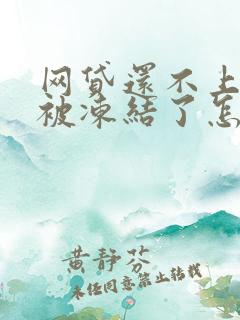 网贷還不上
被凍結了怎
黄静芬
未经同意禁止转载